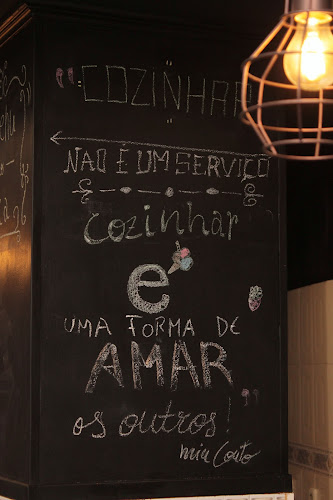 "COZINHAR
NÃO É UM SERVIÇO
cozinhar
é
UMA FORMA DE
AMAR
os outros!"
mia Couto